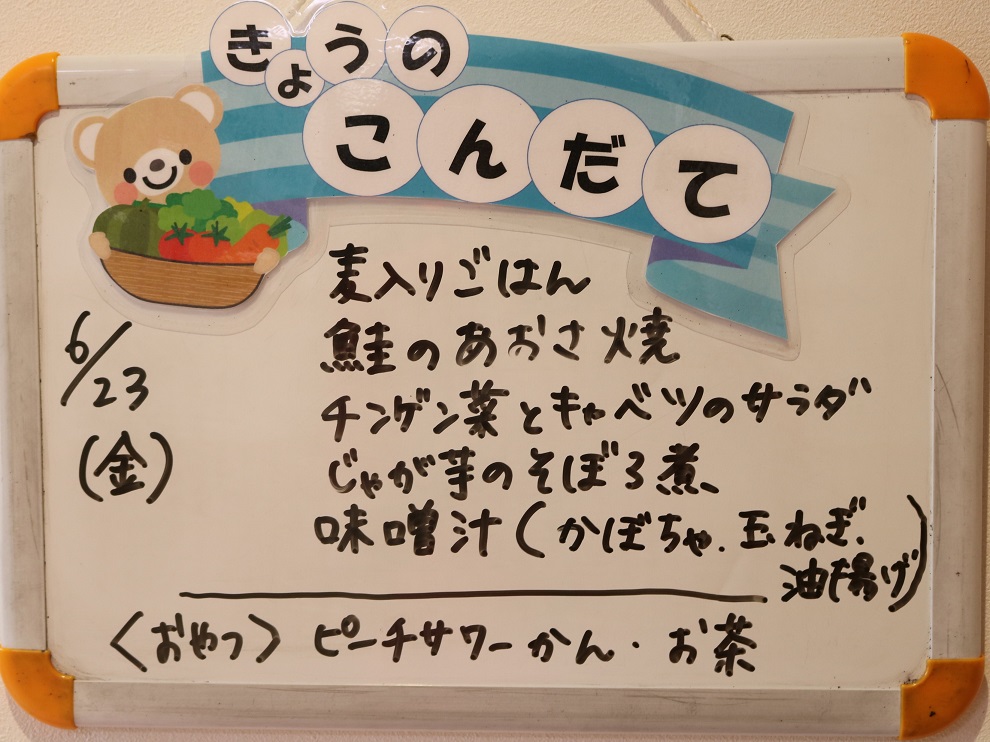 きょうの
こんだて
6/23
(金)
麦入りごはん
鮭のあおさ焼
チンゲン菜とキャベツのサラダ
じゃが芋のそぼろ煮
味噌汁(かぼちゃ、玉ねぎ、
油揚げ)
〈おやつ〉ピーチサワーかん・お茶